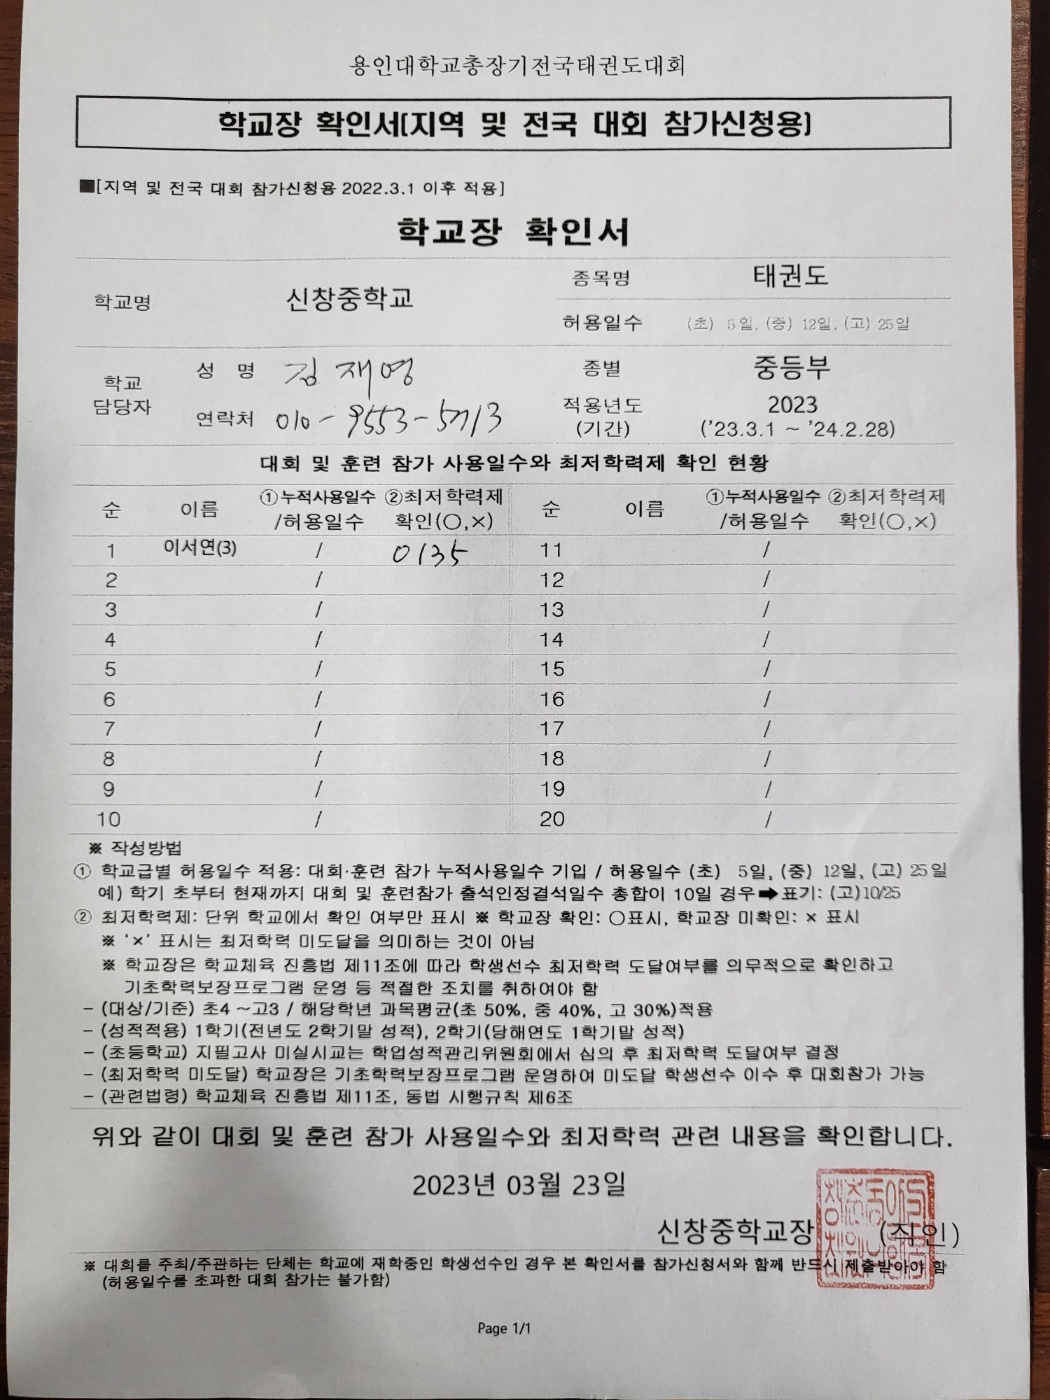 용인대학교총장기전국태권도대회
학교장 확인서(지역 및 전국 대회 참가신청용)
■[지역 및 전국 대회 참가신청용 2022.3.1 이후 적용]
학교장 확인서
학교명 신창중학교 종목명 태권도
허용일수 (초) 5일, (중) 12일, (고) 25일
학교 담당자 성 명 김재영 종별 중등부
연락처 010-9553-5713 적용년도 (기간) 2023 ('23.3.1 ~ '24.2.28)
대회 및 훈련 참가 사용일수와 최저학력제 확인 현황
순 이름 ①누적사용일수 /허용일수 ②최저학력제 확인(○,×) 순 이름 ①누적사용일수 /허용일수 ②최저학력제 확인(○,×)
1 이서연(3) / 0135 11 /
2 / 12 /
3 / 13 /
4 / 14 /
5 / 15 /
6 / 16 /
7 / 17 /
8 / 18 /
9 / 19 /
10 / 20 /
※ 작성방법
① 학교급별 허용일수 적용: 대회·훈련 참가 누적사용일수 기입 / 허용일수 (초) 5일, (중) 12일, (고) 25일
예) 학기 초부터 현재까지 대회 및 훈련참가 출석인정결석일수 총합이 10일 경우➡표기: (고)10/25
② 최저학력제: 단위 학교에서 확인 여부만 표시 ※ 학교장 확인: ○표시, 학교장 미확인: × 표시
※ '×' 표시는 최저학력 미도달을 의미하는 것이 아님
※ 학교장은 학교체육 진흥법 제11조에 따라 학생선수 최저학력 도달여부를 의무적으로 확인하고
기초학력보장프로그램 운영 등 적절한 조치를 취하여야 함
- (대상/기준) 초4 ~고3 / 해당학년 과목평균(초 50%, 중 40%, 고 30%)적용
- (성적적용) 1학기(전년도 2학기말 성적), 2학기(당해연도 1학기말 성적)
- (초등학교) 지필고사 미실시교는 학업성적관리위원회에서 심의 후 최저학력 도달여부 결정
- (최저학력 미도달) 학교장은 기초학력보장프로그램 운영하여 미도달 학생선수 이수 후 대회참가 가능
- (관련법령) 학교체육 진흥법 제11조, 동법 시행규칙 제6조
위와 같이 대회 및 훈련 참가 사용일수와 최저학력 관련 내용을 확인합니다.
2023년 03월 23일
신창중학교장 (직인)
※ 대회를 주최/주관하는 단체는 학교에 재학중인 학생선수인 경우 본 확인서를 참가신청서와 함께 반드시 제출받아야 함
(허용일수를 초과한 대회 참가는 불가함)
Page 1/1